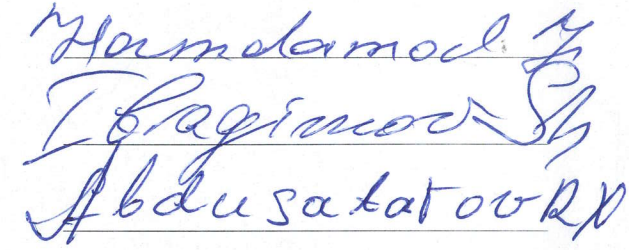 Hamdamod Z
Ibragimov Sh
Abdusatarov RX